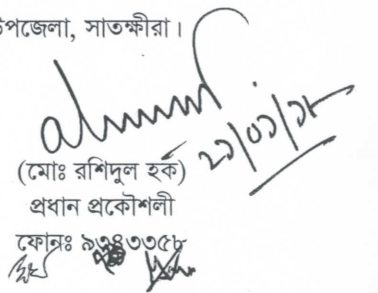 উপজেলা, সাতক্ষীরা।
(মোঃ রশিদুল হক)
প্রধান প্রকৌশলী
ফোনঃ ৯৩৪৩৩৫৮